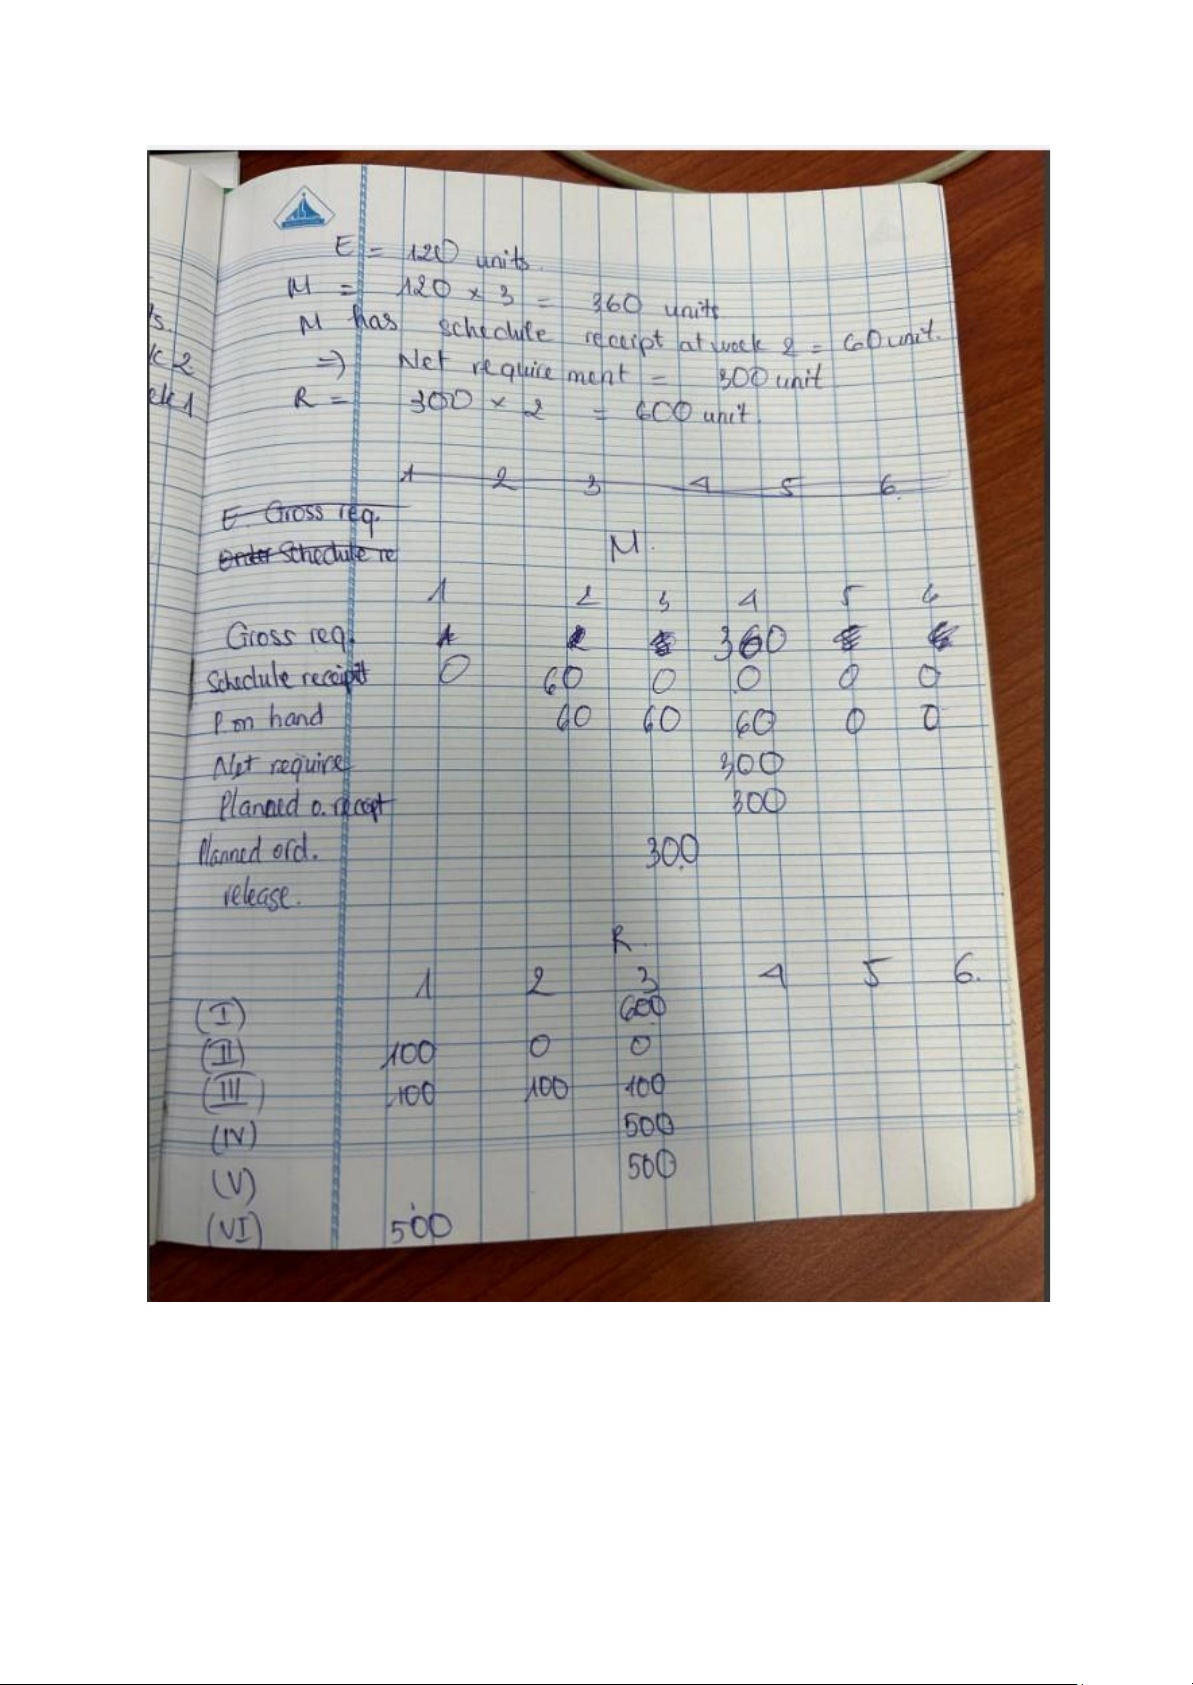 E = 120 units.
M = 120 × 3 = 360 units
M has schedule receipt at week 2 = 60 unit.
=> Net requirement = 300 unit
R = 300 × 2 = 600 unit.
s.
k 2
ek 1
1 2 3 4 5 6.
E. Gross req.
Order Schedule re
M.
1 2 3 4 5 6
Gross req. 1 2 360
Schedule receipt 0 60 0 0 0 0
P. on hand 60 60 60 0 0
Net require 300
Planned o. recept 300
Planned ord. 300
release.
R.
1 2 3 4 5 6.
(I) 600
(II) 100 0 0
(III) 100 100 100
(IV) 500
(V) 500
(VI) 500